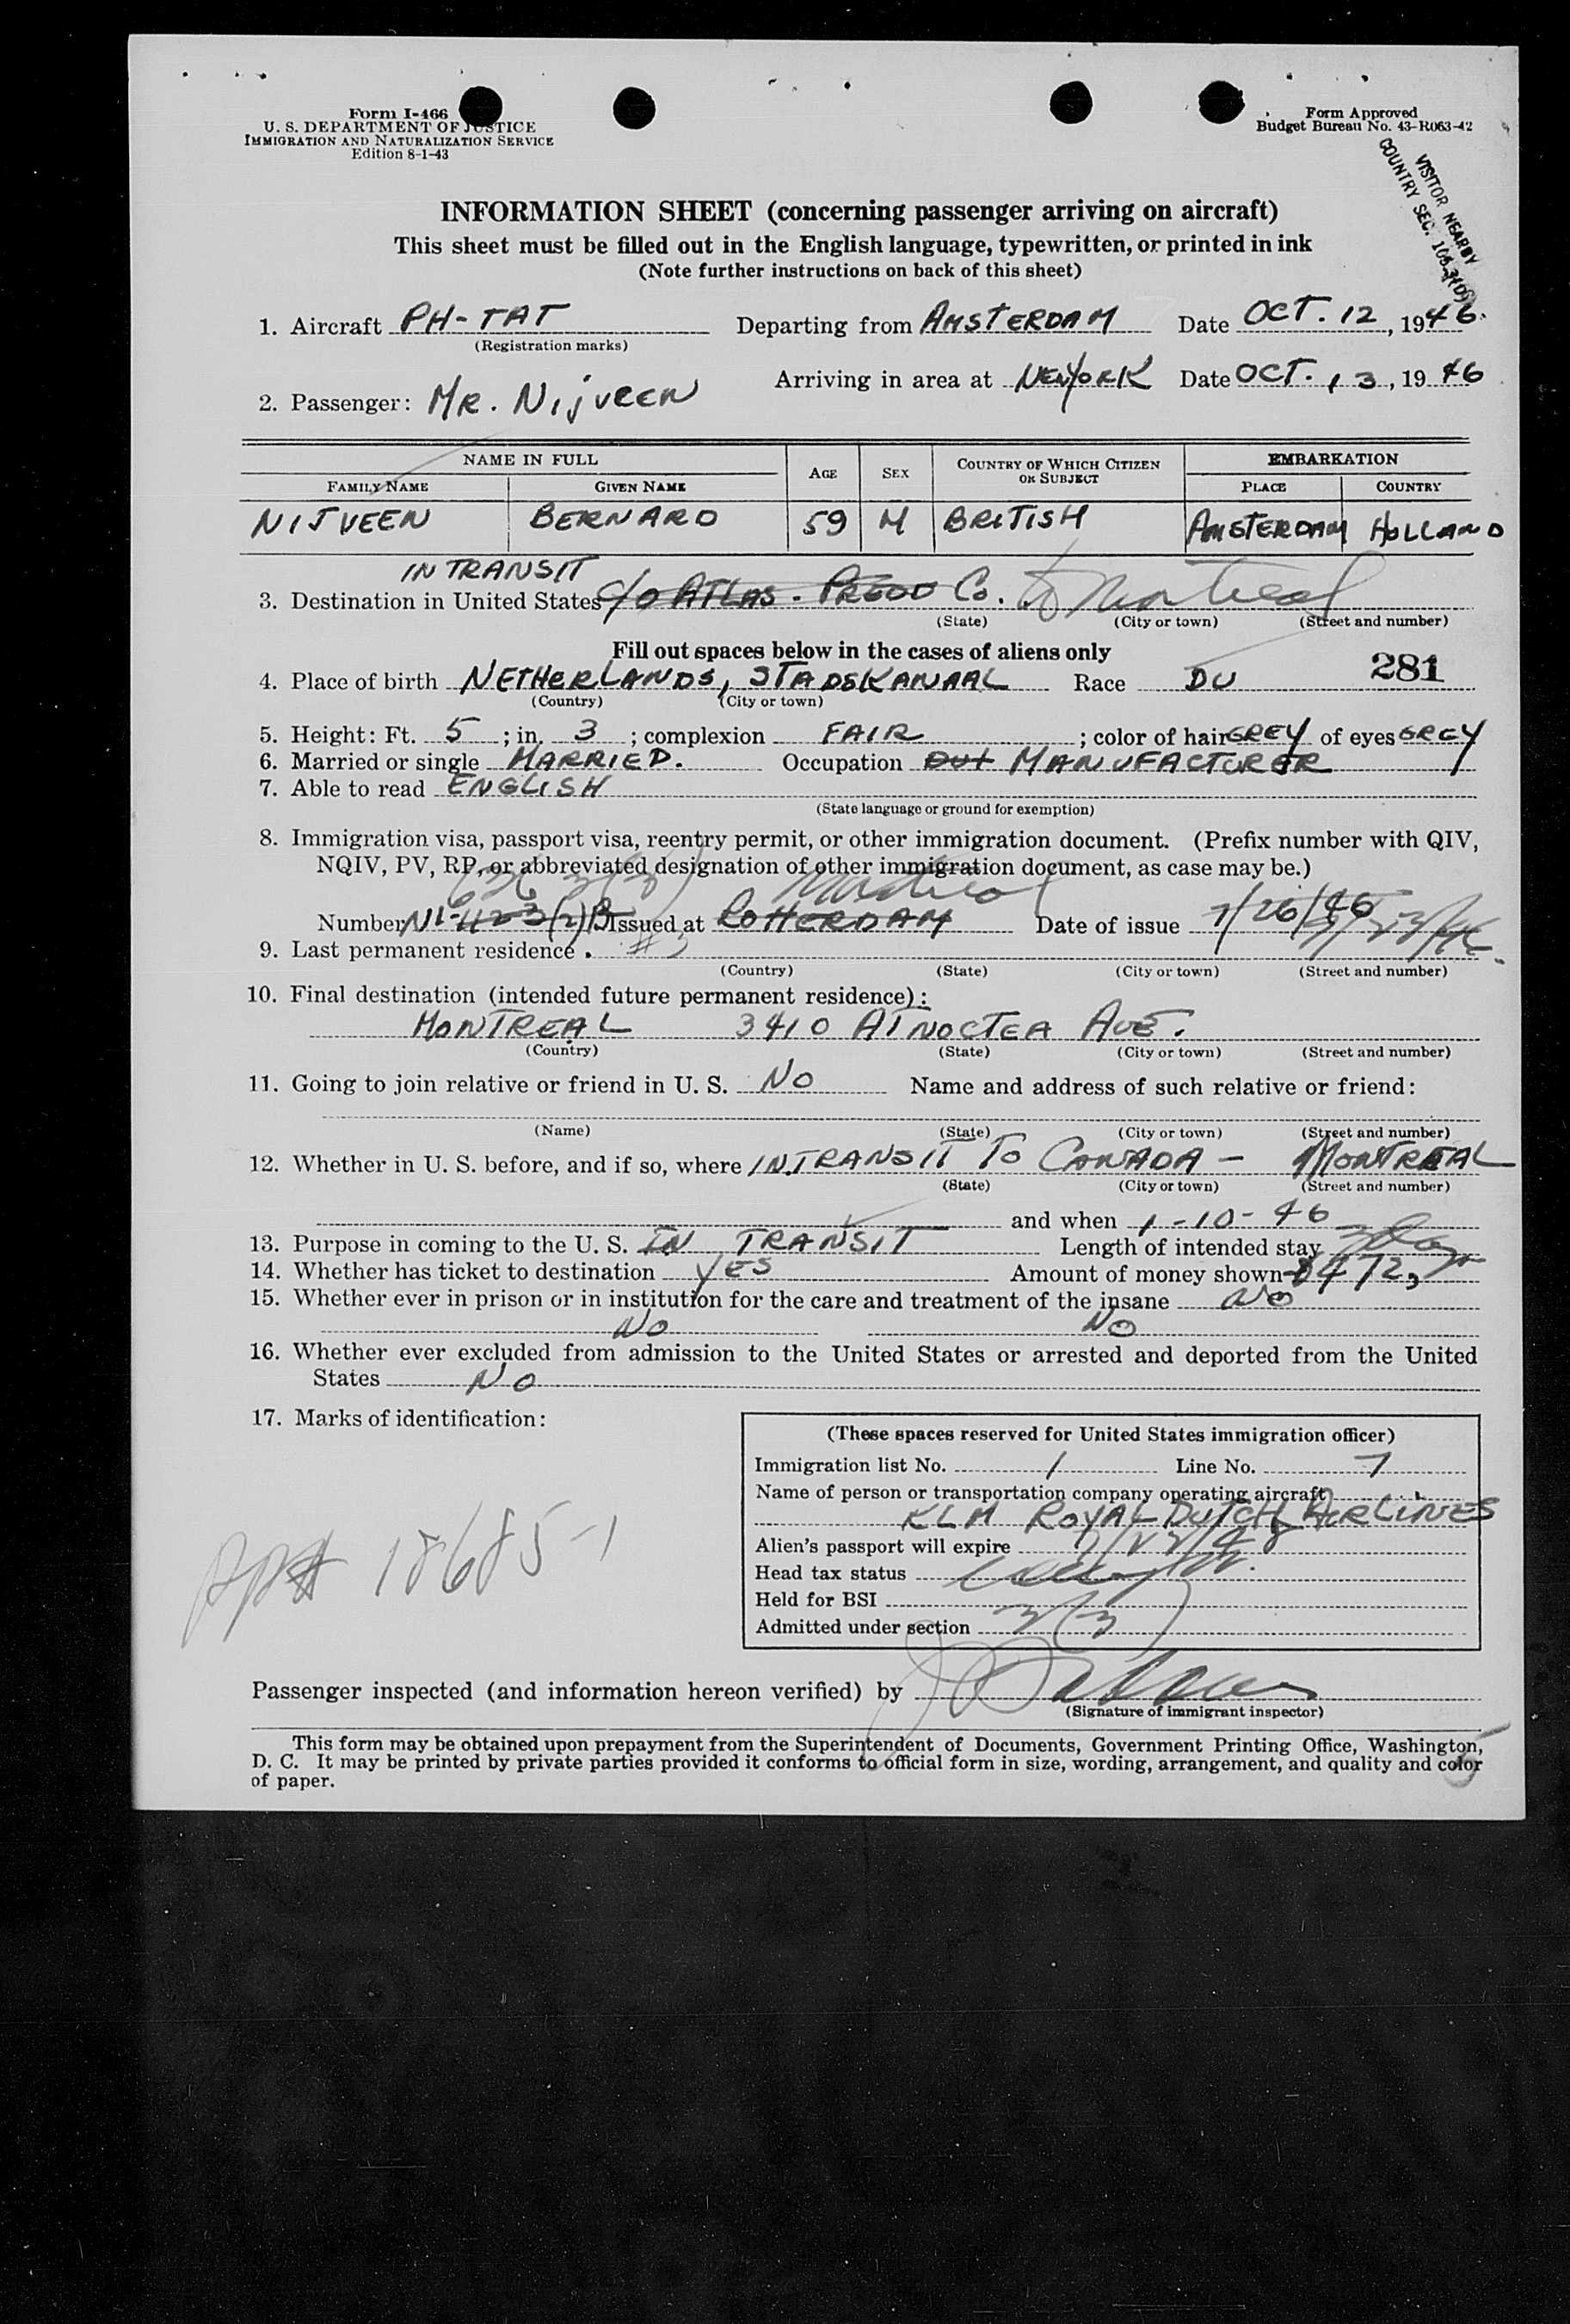 Form I-466
U. S. DEPARTMENT OF JUSTICE
IMMIGRATION AND NATURALIZATION SERVICE
Edition 8-1-43
Form Approved
Budget Bureau No. 43-R063-42
VISITOR NEARBY
COUNTRY SEC.
INFORMATION SHEET (concerning passenger arriving on aircraft)
This sheet must be filled out in the English language, typewritten, or printed in ink
(Note further instructions on back of this sheet)
1. Aircraft PH-TAT Departing from AMSTERDAM Date OCT. 12, 1946.
(Registration marks)
Arriving in area at NEWYORK Date OCT. 13, 1946
2. Passenger: MR. NIJVEEN
NAME IN FULL AGE SEX COUNTRY OF WHICH CITIZEN OR SUBJECT EMBARKATION
FAMILY NAME GIVEN NAME PLACE COUNTRY
NIJVEEN BERNARD 59 M BRITISH AMSTERDAM HOLLAND
IN TRANSIT
3. Destination in United States c/o ATLAS - Co. to Montreal
(State) (City or town) (Street and number)
Fill out spaces below in the cases of aliens only
281
4. Place of birth NETHERLANDS, STADSKANAAL Race DU
(Country) (City or town)
5. Height: Ft. 5; in. 3; complexion FAIR; color of hair GREY of eyes GREY
6. Married or single MARRIED. Occupation Dut MANUFACTURER
7. Able to read ENGLISH
(State language or ground for exemption)
8. Immigration visa, passport visa, reentry permit, or other immigration document. (Prefix number with QIV,
NQIV, PV, RP, or abbreviated designation of other immigration document, as case may be.)
Montreal
Number Issued at ROTTERDAM Date of issue 7/26/46
9. Last permanent residence
(Country) (State) (City or town) (Street and number)
10. Final destination (intended future permanent residence):
MONTREAL 3410 AVE.
(Country) (State) (City or town) (Street and number)
11. Going to join relative or friend in U. S. NO Name and address of such relative or friend:
(Name) (State) (City or town) (Street and number)
12. Whether in U. S. before, and if so, where IN TRANSIT TO CANADA - MONTREAL
(State) (City or town) (Street and number)
and when 1-10-46
13. Purpose in coming to the U. S. IN TRANSIT Length of intended stay
14. Whether has ticket to destination YES Amount of money shown $472,
15. Whether ever in prison or in institution for the care and treatment of the insane NO
NO NO
16. Whether ever excluded from admission to the United States or arrested and deported from the United
States NO
17. Marks of identification:
18685-1
(These spaces reserved for United States immigration officer)
Immigration list No. 1 Line No. 7
Name of person or transportation company operating aircraft
KLM ROYAL DUTCH AIRLINES
Alien's passport will expire
Head tax status
Held for BSI
Admitted under section 3(3)
Passenger inspected (and information hereon verified) by
(Signature of immigrant inspector)
This form may be obtained upon prepayment from the Superintendent of Documents, Government Printing Office, Washington,
D. C. It may be printed by private parties provided it conforms to official form in size, wording, arrangement, and quality and color
of paper.